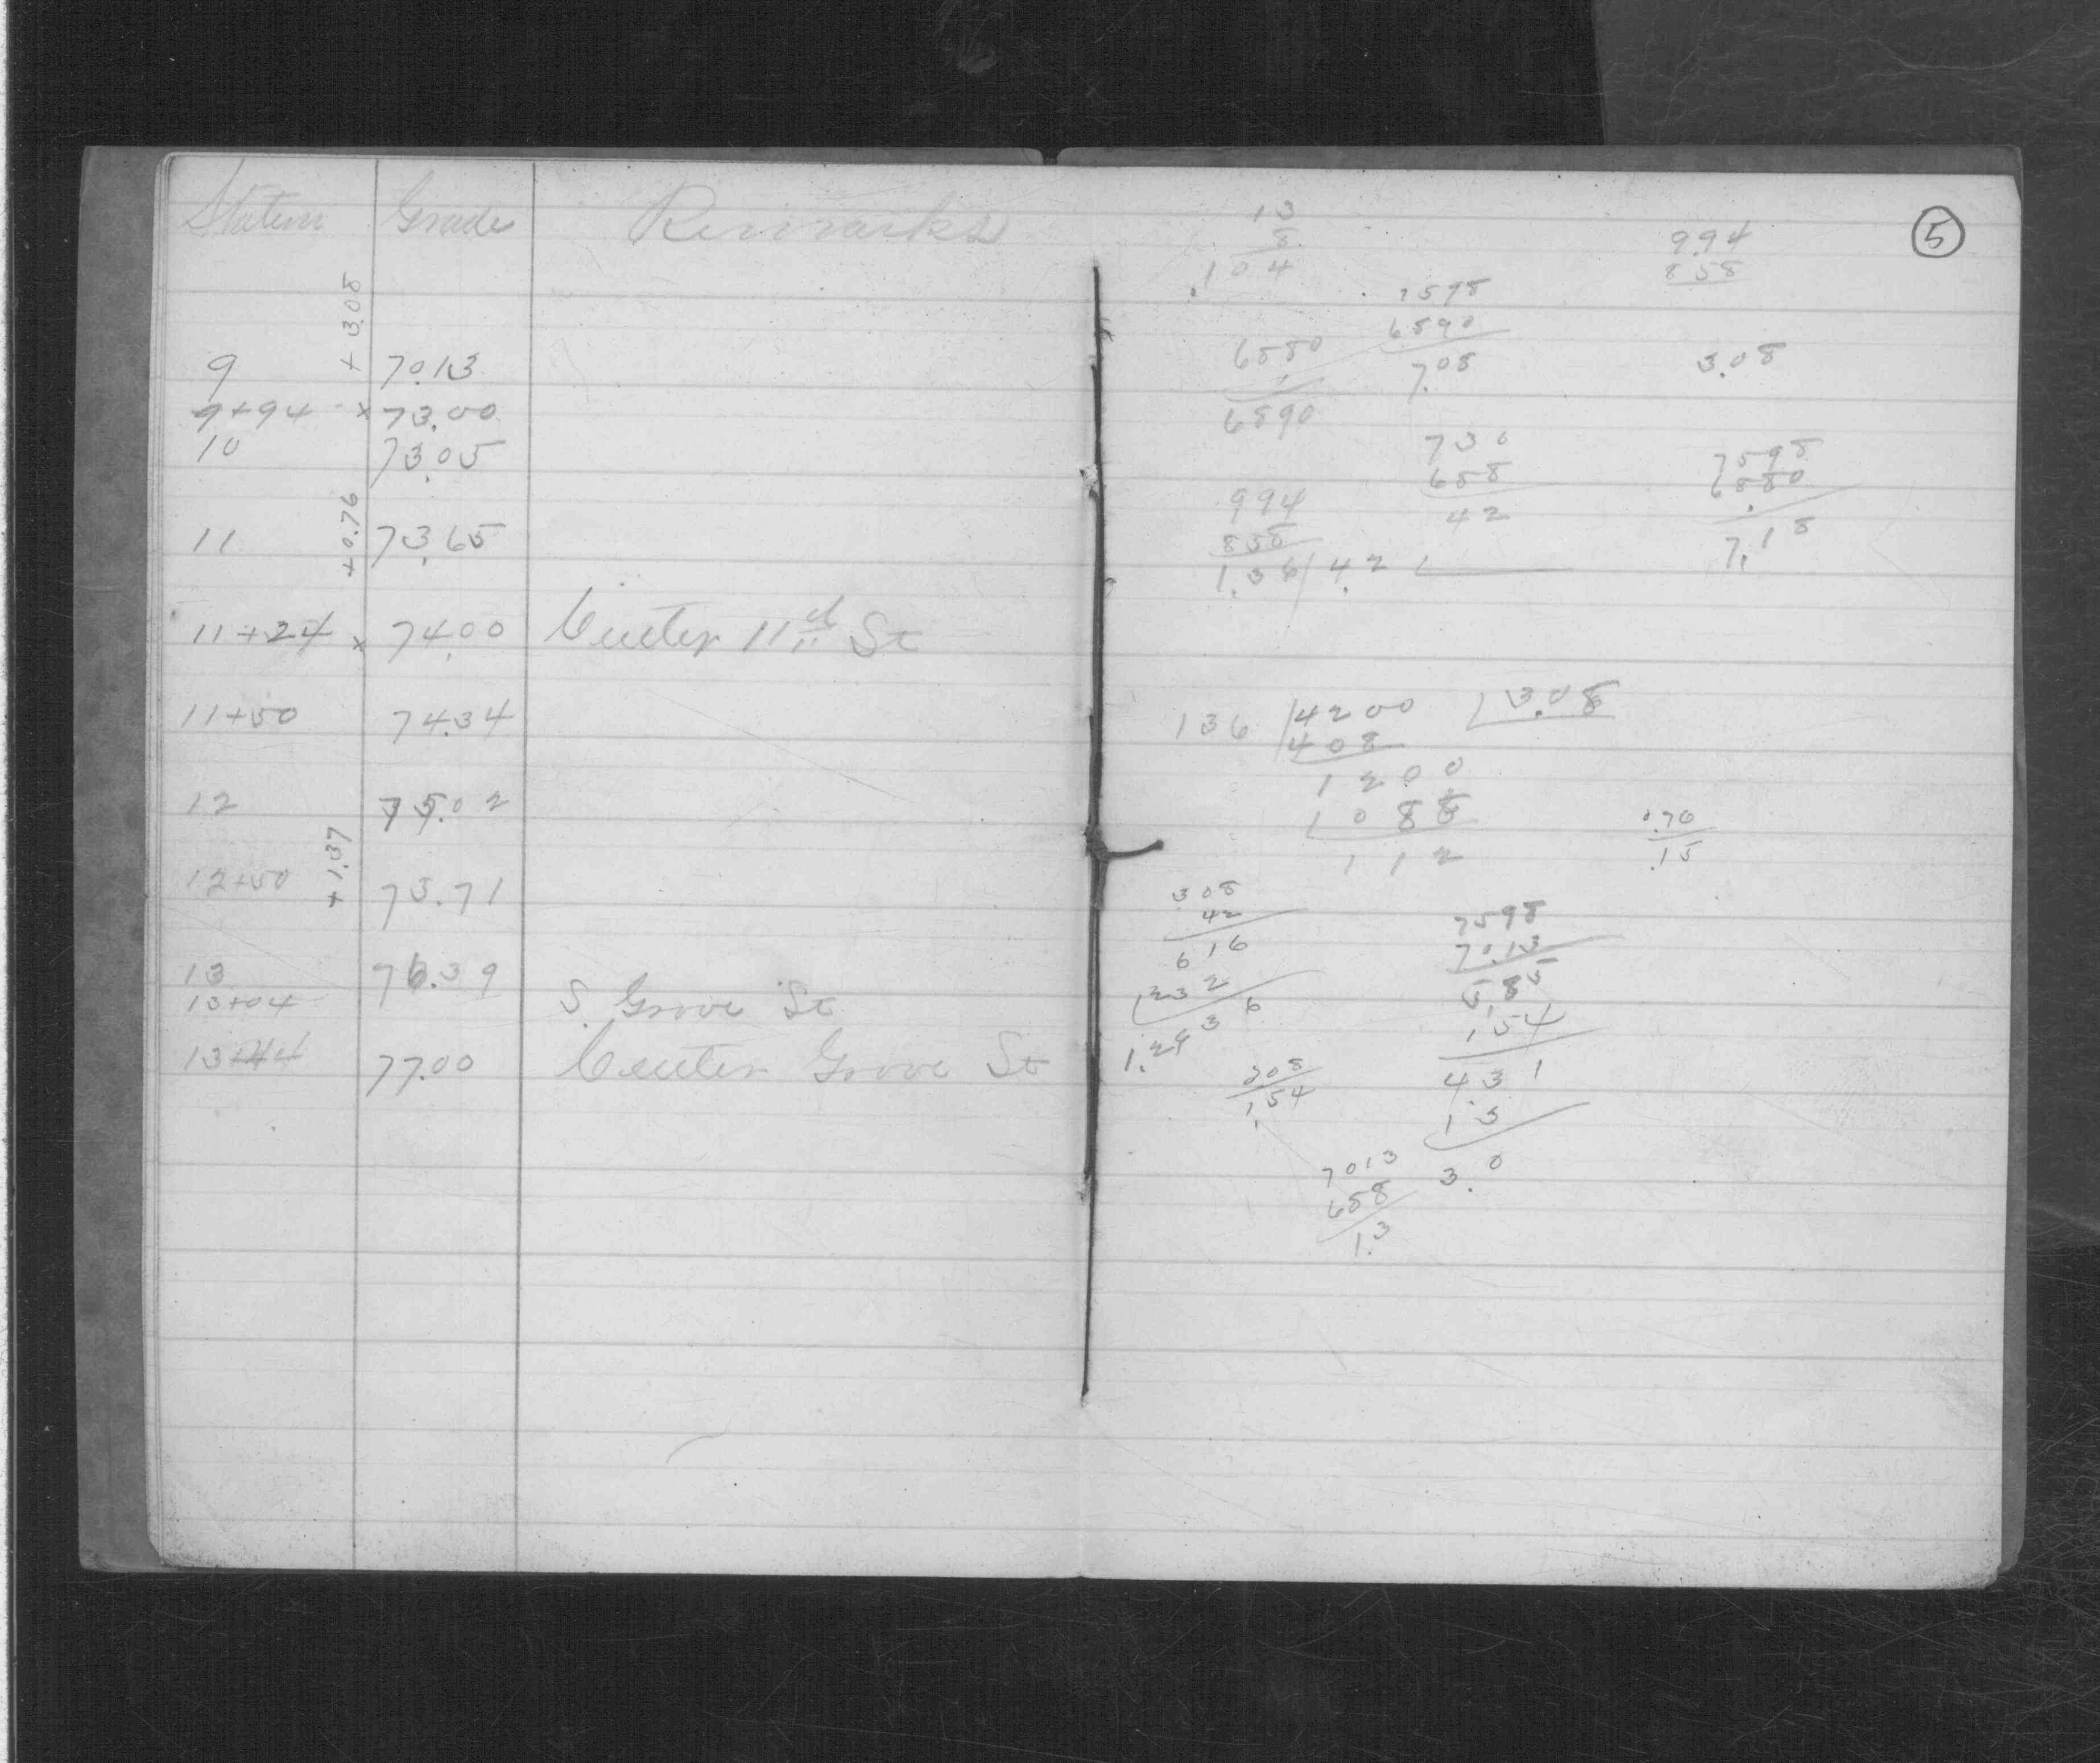 Station Grade Remarks
+3.08
9 70.13
9+94 x 73.00
10 73.05
+0.76
11 73.65
11+24 x 74.00 Center 11th St
11+50 74.34
12 75.02
+1.37
12+50 75.71
13 76.39
13+04 S. Grove St
13+44 77.00 Center Grove St
5
13
8
.104
994
858
7598
6890
7.08
6880
1
6890
3.08
730
688
42
7598
6880
7.18
994
858
1.36/4.2
136 /4200 /3.08
408
1200
1088
112
0.76
.15
308
42
616
1232
7598
70.13
5.85
154
431
13
3.0
308
154
7013
688
1.3